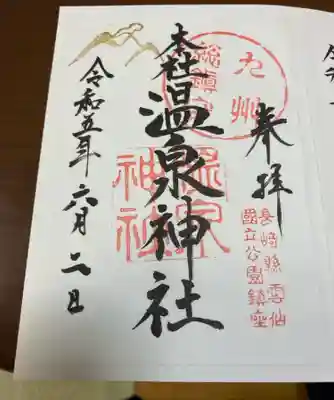 奉拝
九州
総鎮守
長崎縣雲仙
國立公園鎮座
本社温泉神社
温泉
神社
令和五年六月二日